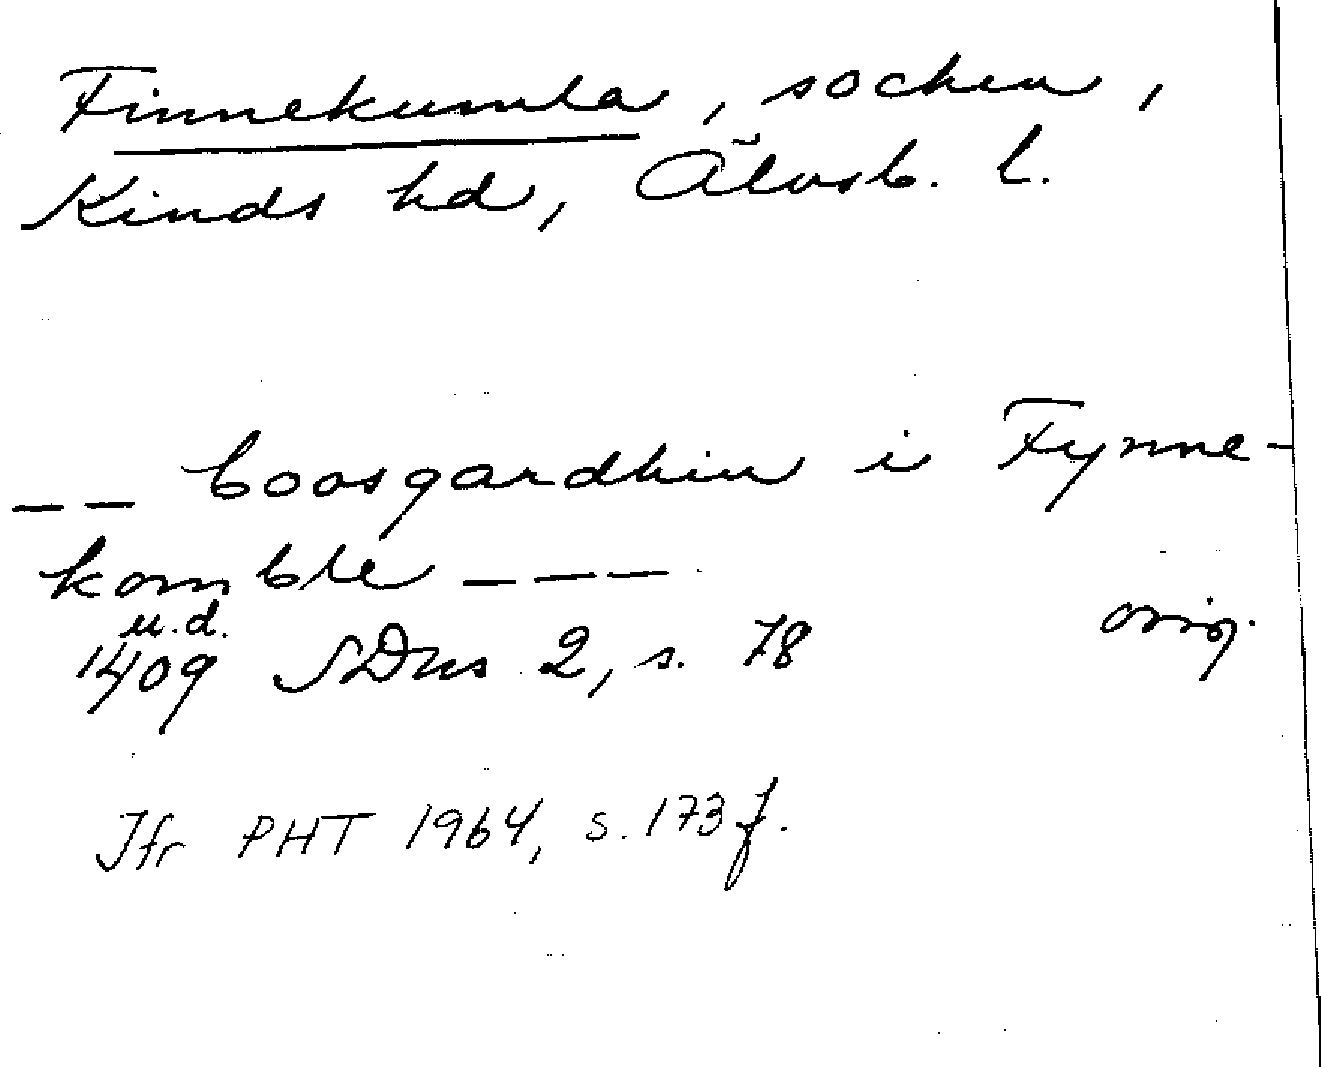 Finnekumla, socken,
Kinds hd, Älvsb. l.
-- boosgardhin i Fynne-
komble ---
u.d.
1409 SDns 2, s. 78 orig.
Jfr PHT 1964, s. 173 f.